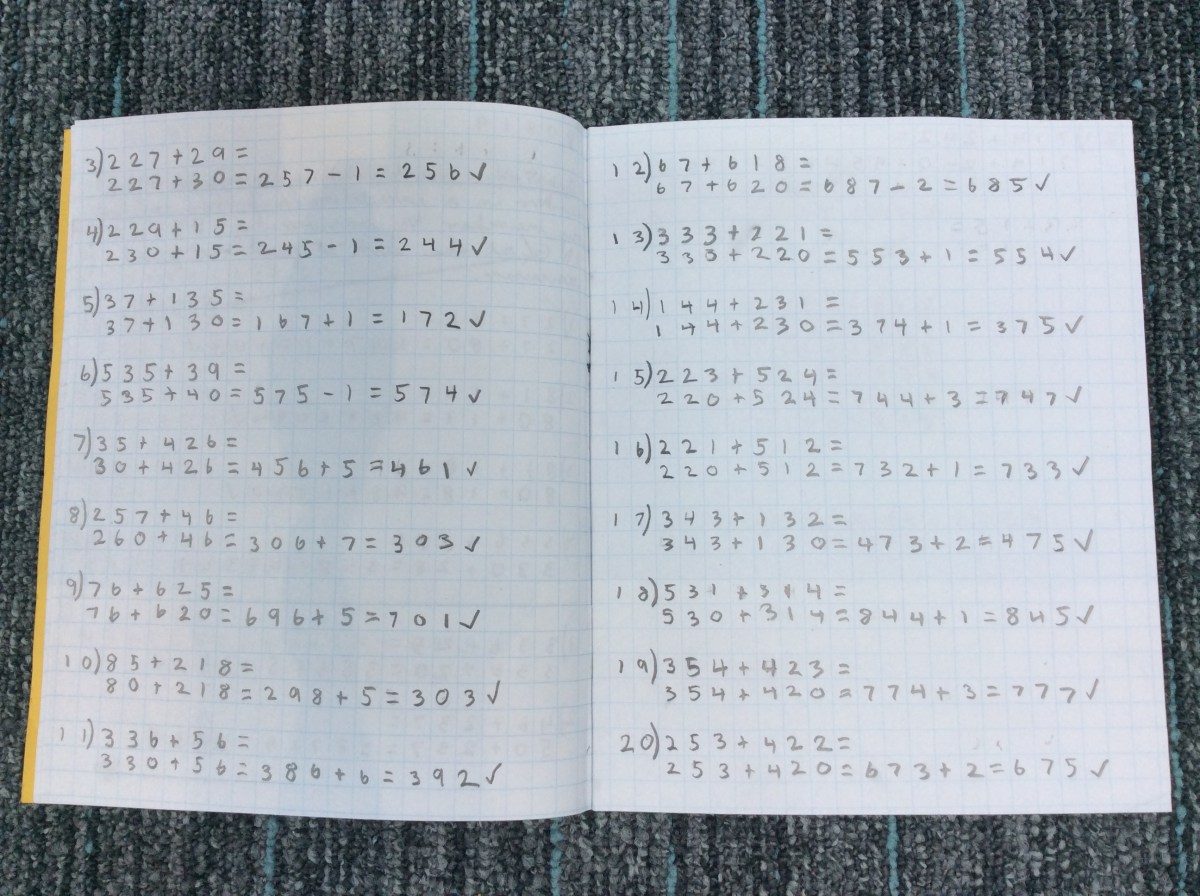 3) 227+29=
227+30=257-1=256✓
4) 229+15=
230+15=245-1=244✓
5) 37+135=
37+130=167+1=172✓
6) 535+39=
535+40=575-1=574✓
7) 35+426=
30+426=456+5=461✓
8) 257+46=
260+46=306+7=303✓
9) 76+625=
76+620=696+5=701✓
10) 85+218=
80+218=298+5=303✓
11) 336+56=
330+56=386+6=392✓
12) 67+618=
67+620=687-2=685✓
13) 333+221=
333+220=553+1=554✓
14) 144+231=
144+230=374+1=375✓
15) 223+524=
220+524=744+3=747✓
16) 221+512=
220+512=732+1=733✓
17) 343+132=
343+130=473+2=475✓
18) 531+314=
530+314=844+1=845✓
19) 354+423=
354+420=774+3=777✓
20) 253+422=
253+420=673+2=675✓